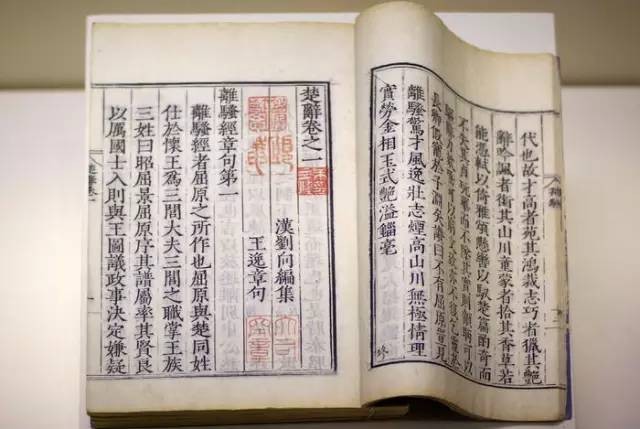 代也故才高者苑其鴻裁志巧者獵其艷
辭吟諷者銜其山川童蒙者拾其香草若
能憑軾以倚雅頌懸轡以馭楚篇酌奇而
不失其真翫華而不墜其實則顧盼可以
長卿假寵於子淵矣讚曰不有屈原豈見
離騷驚才風逸壯志煙高山川無極情理
實勞金相玉式艷溢錙毫
終
楚辭卷之一
漢劉向編集
王逸章句
離騷經章句第一
離騷經者屈原之所作也屈原與楚同姓
仕於懷王為三閭大夫三閭之職掌王族
三姓曰昭屈景屈原序其譜屬率其賢良
以厲國士入則與王圖議政事決定嫌疑